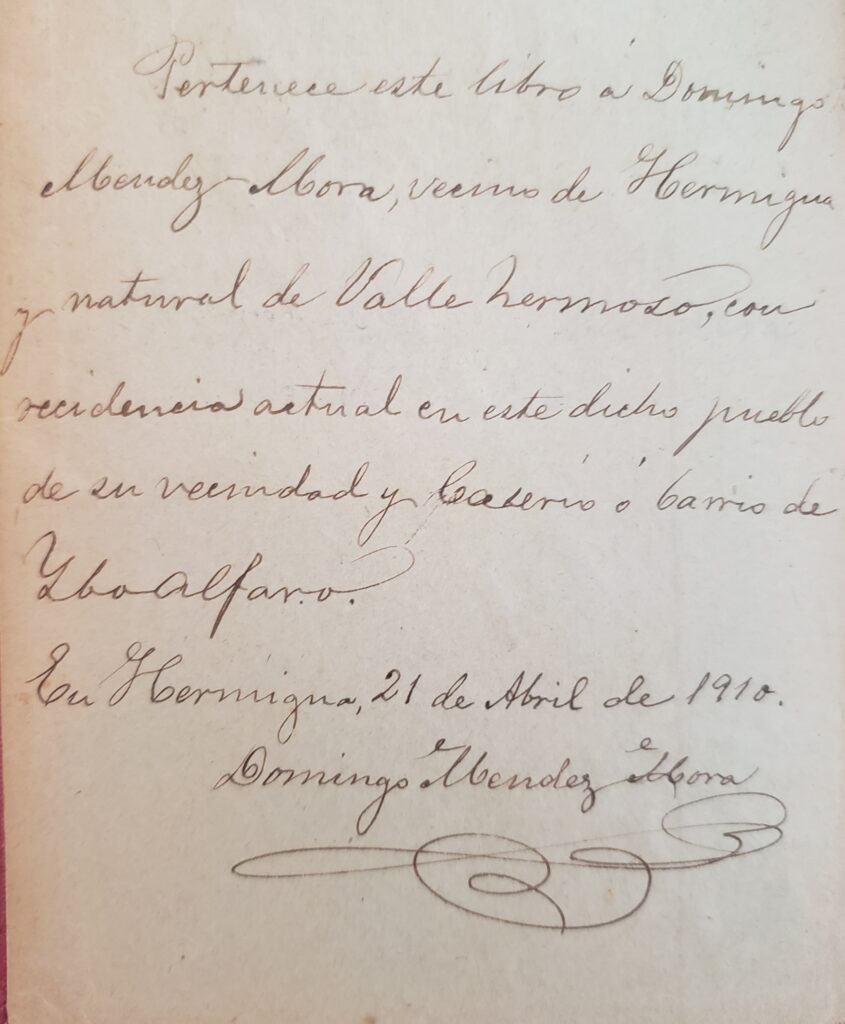 Pertenece este libro á Domingo
Mendez Mora, vecino de Hermigua
y natural de Valle hermoso, con
recidencia actual en este dicho pueblo
de su vecindad y Caserio ó barrio de
Ybo Alfaro.
En Hermigua, 21 de Abril de 1910.
Domingo Mendez Mora